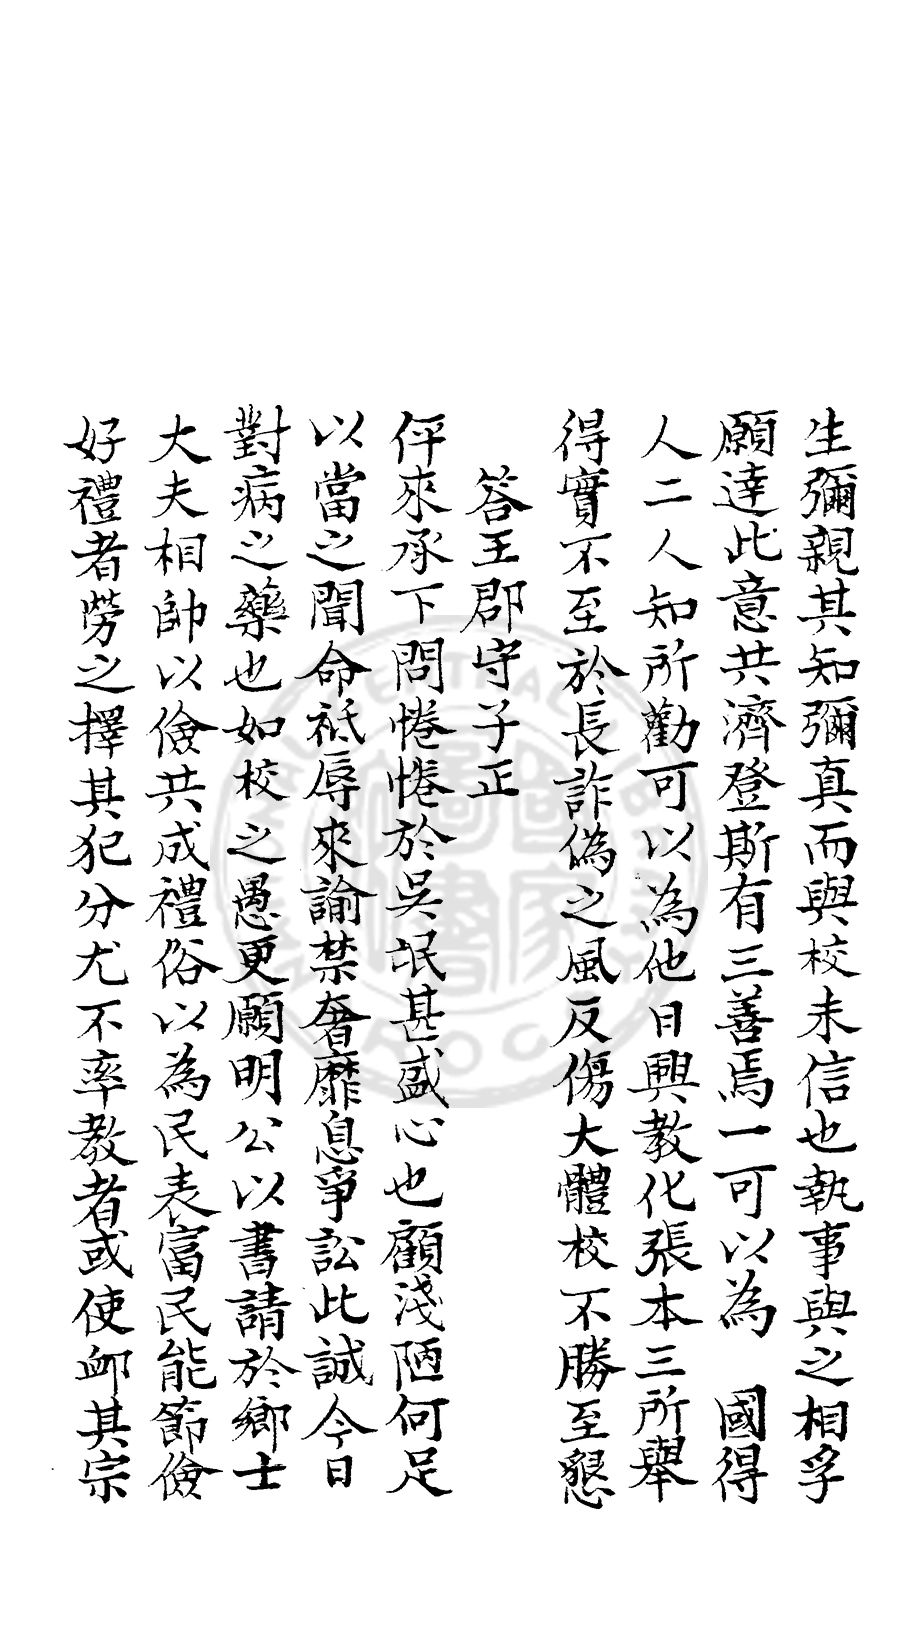 生彌親其知彌真而與校未信也執事與之相孚
願達此意共濟登斯有三善焉一可以為　國得
人二人知所勸可以為他日興教化張本三所舉
得實不至於長詐偽之風反傷大體校不勝至懇
答王郡守子正
伻來承下問惓惓於吳氓甚盛心也顧淺陋何足
以當之聞命祗辱來諭禁奢靡息爭訟此誠今日
對病之藥也如校之愚更願明公以書請於鄉士
大夫相帥以儉共成禮俗以為民表富民能節儉
好禮者勞之擇其犯分尤不率教者或使卹其宗